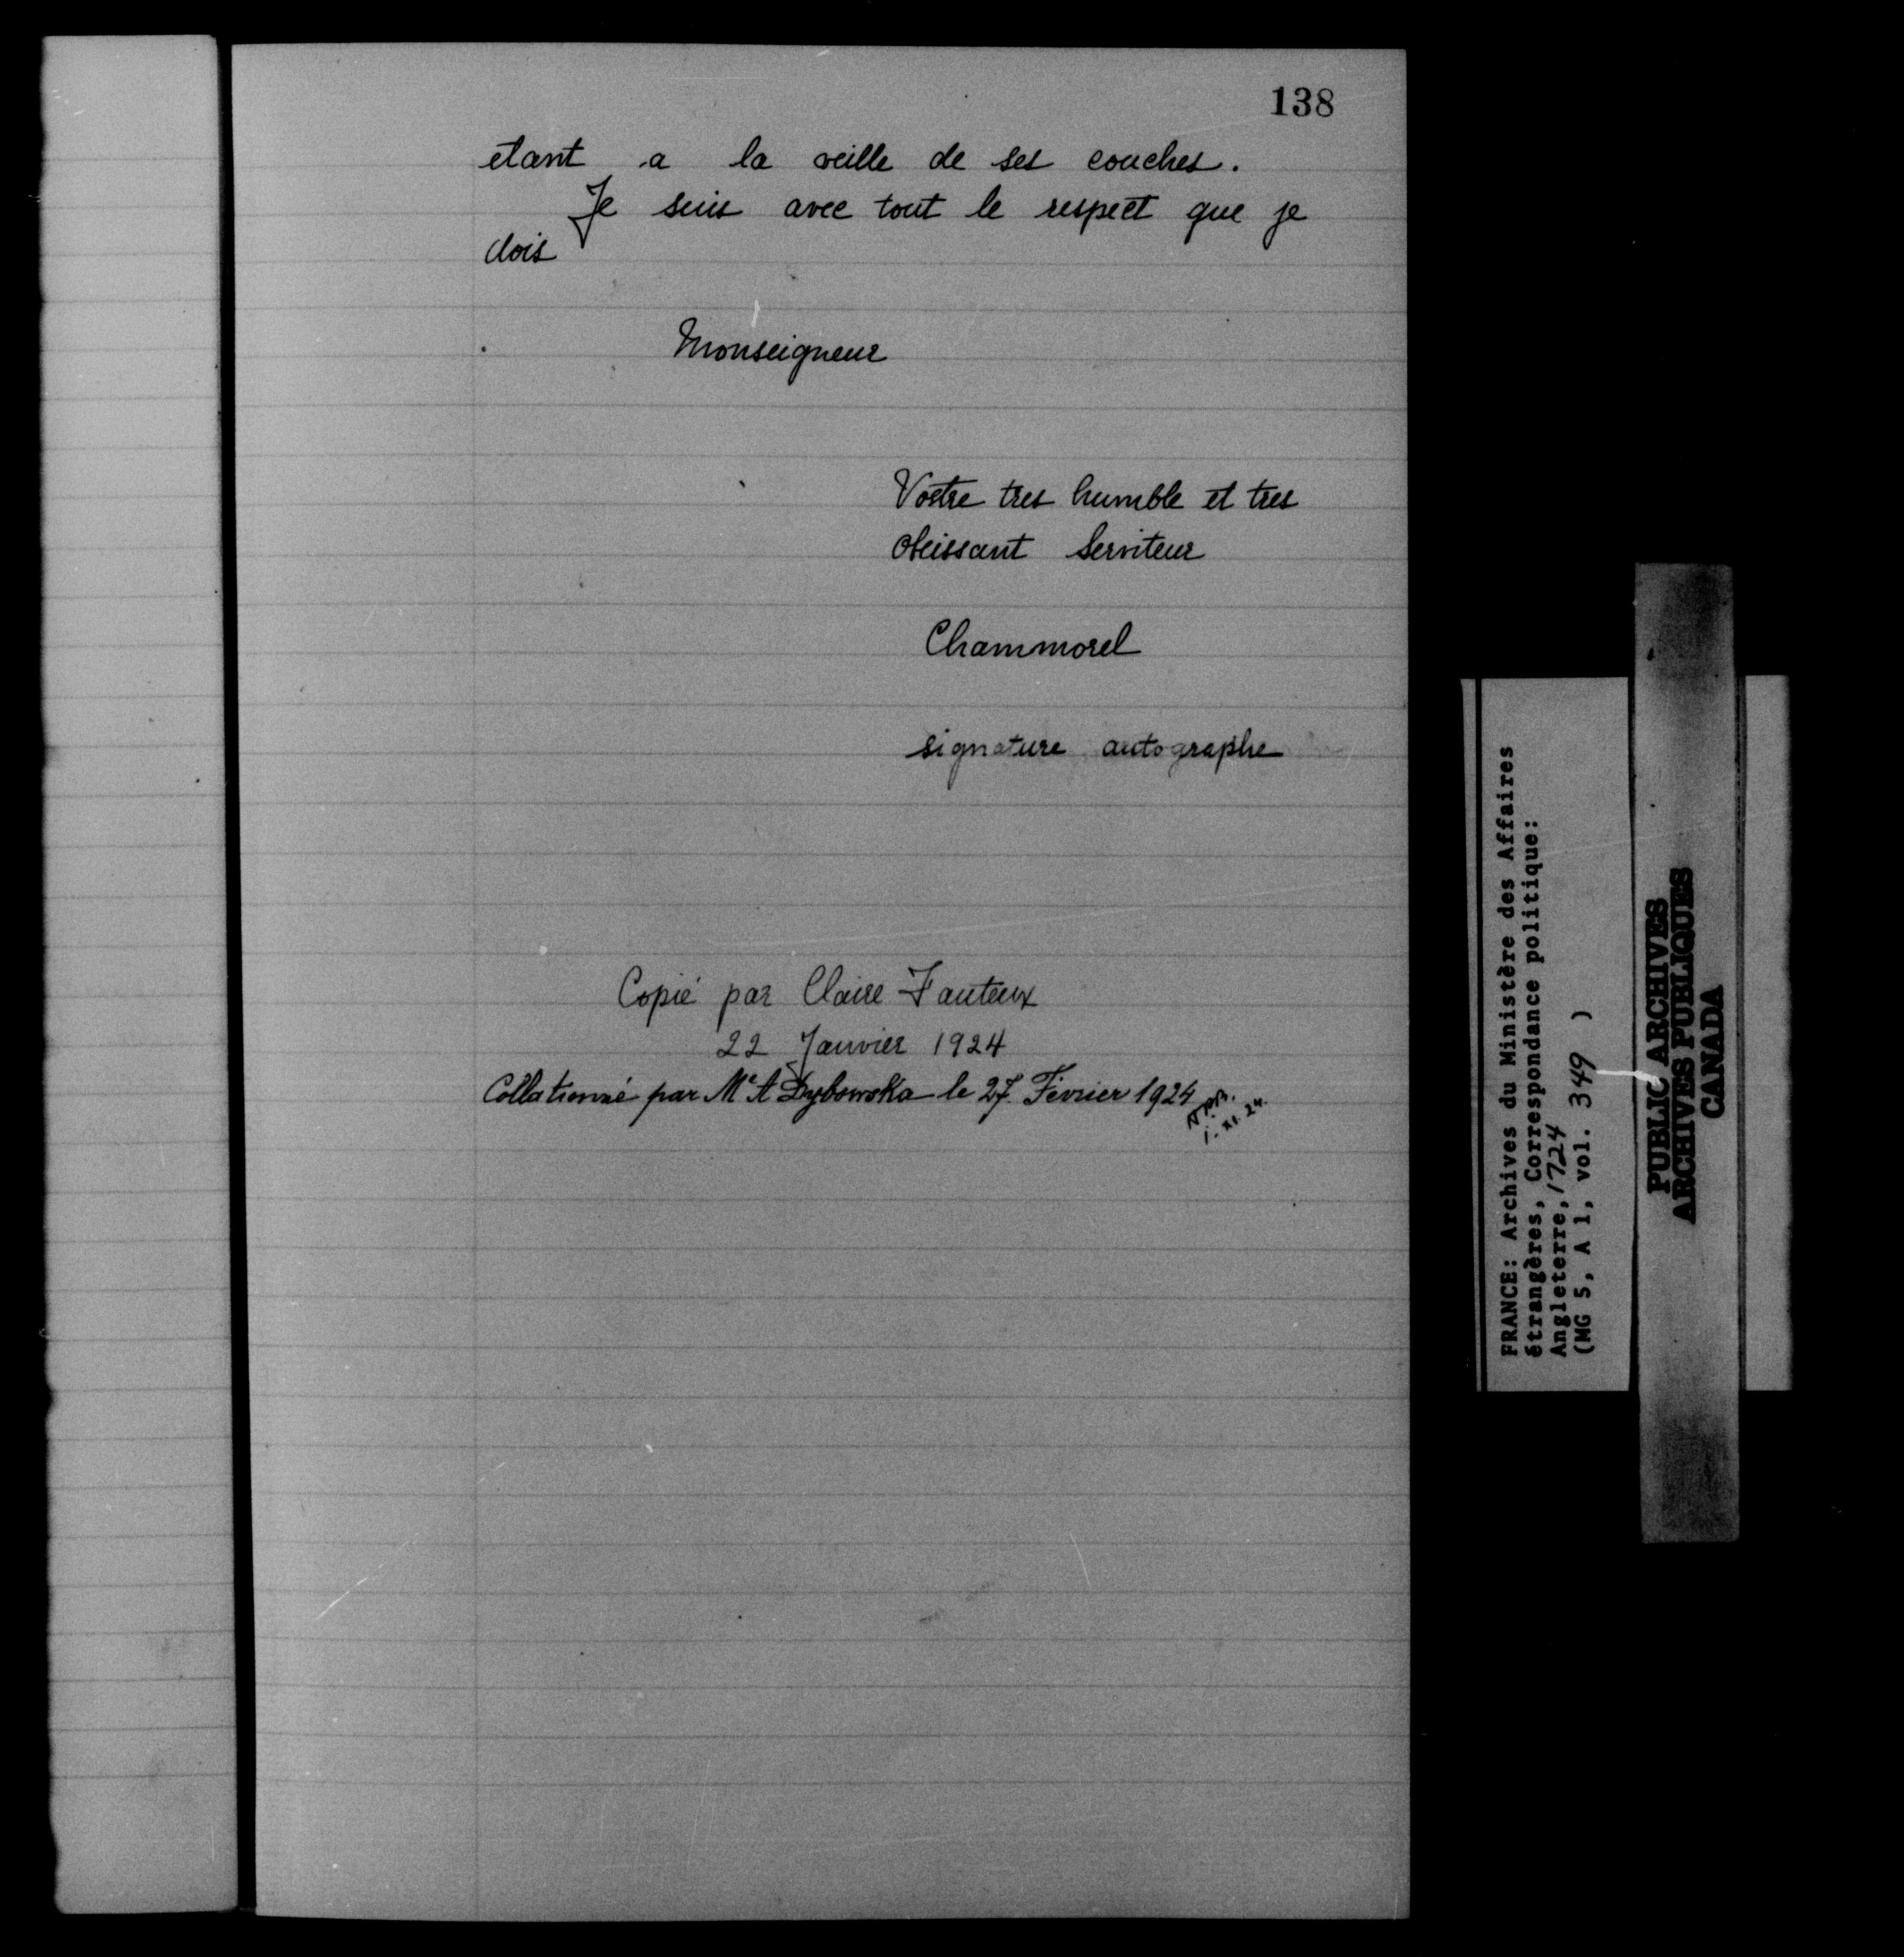 138
etant a la veille de ses couches.
Je suis avec tout le respect que je
dois
Monseigneur
Vostre tres humble et tres
obeissant Serviteur
Chammorel
signature autographe
Copié par Claire Fauteux
22 Janvier 1924
Collationné par Me A Dybowska le 27 Février 1924
i. XI. 24.
FRANCE: Archives du Ministère des Affaires
étrangères, Correspondance politique:
Angleterre, 1724
(MG 5, A 1, vol. 349 )
PUBLIC ARCHIVES
ARCHIVES PUBLIQUES
CANADA